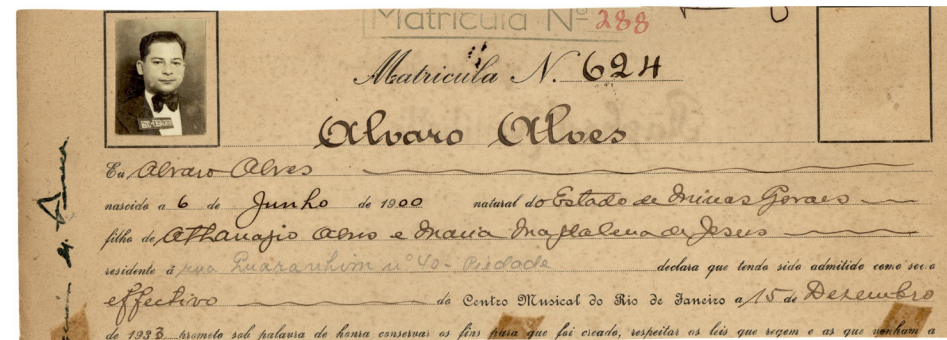 Matricula Nº 288
Matricula N. 624
Alvaro Alves
Eu Alvaro Alves
nascido a 6 de Junho de 1900 natural do Estado de Minas Geraes
filho de Athanazio Alves e Maria Magdalena de Jesus
residente á rua Guaranhim nº 40 - Piedade declara que tendo sido admittido como socio
effectivo do Centro Musical do Rio de Janeiro a 15 de Dezembro
de 1933 prometo sob palavra de honra conservar os fins para que foi creado, respeitar os leis que regem e as que venham a